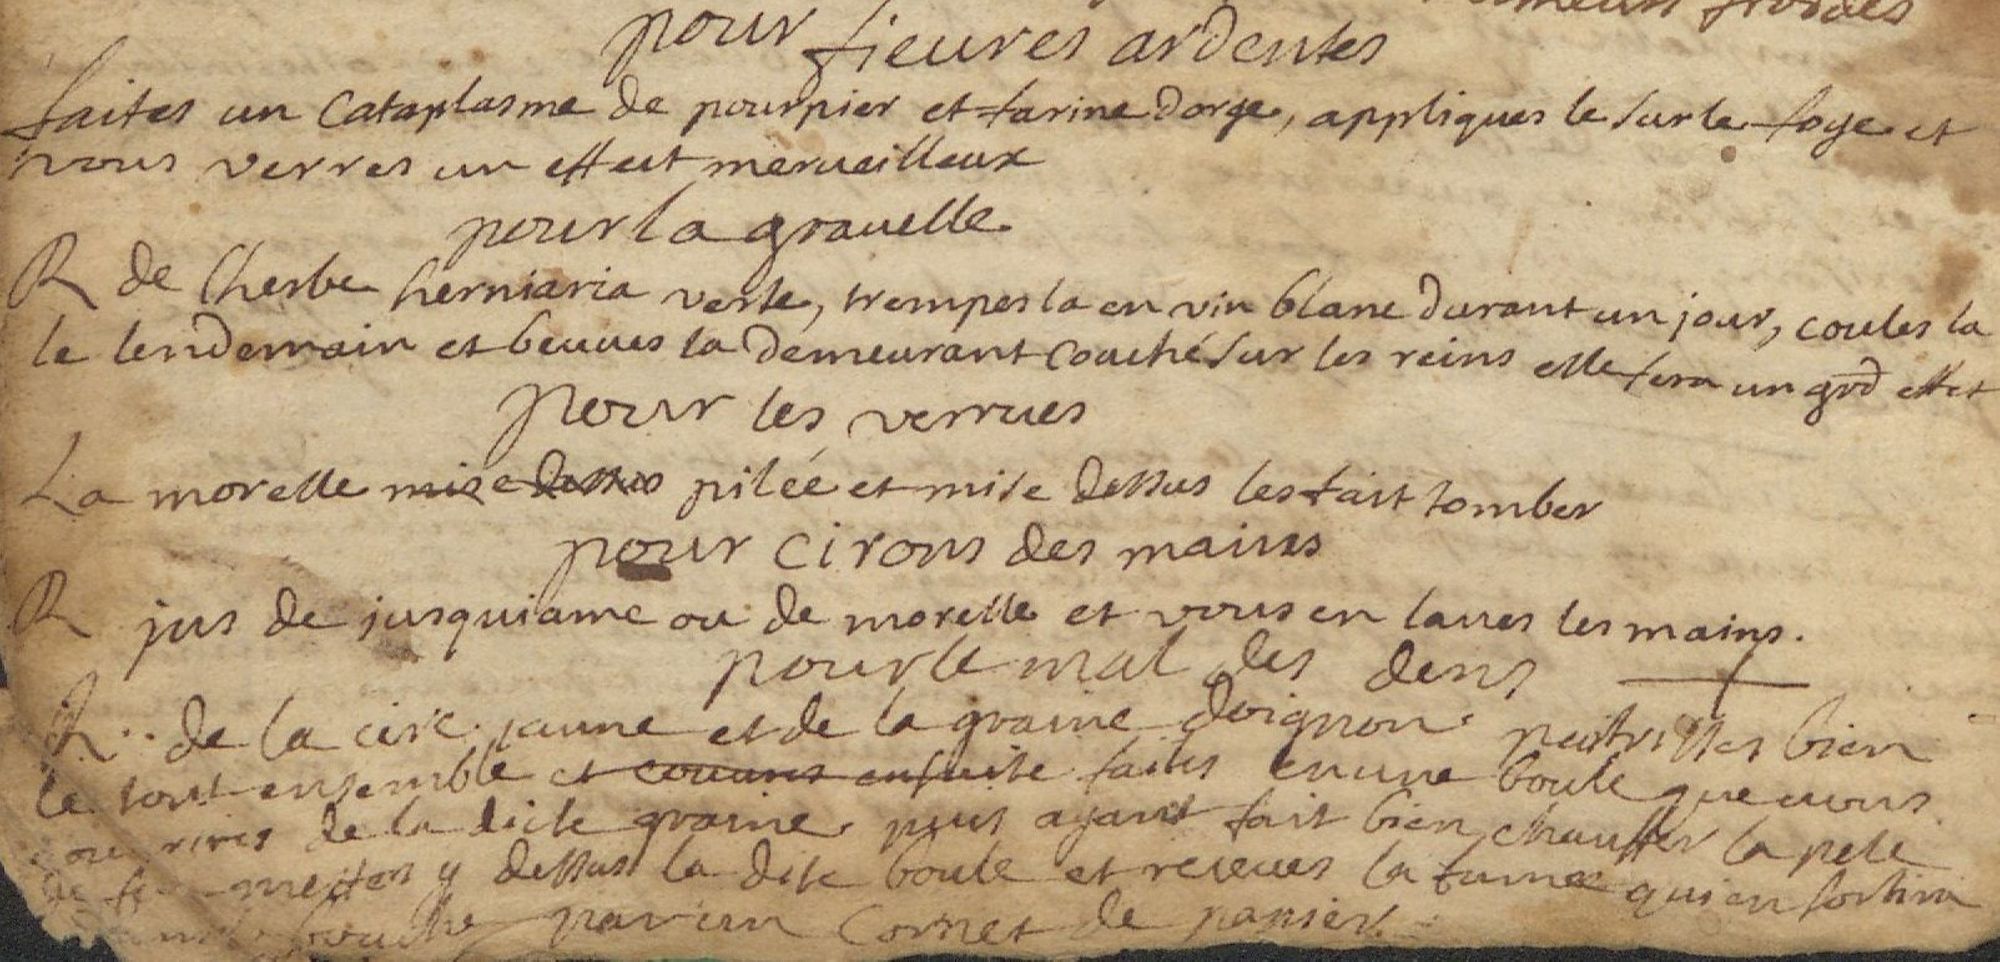 humeurs froides
pour fieures ardentes
faites un cataplasme de pourpier et farine dorge, appliques le sur le foye et
vous verres un effect merueilleux
pour la grauelle
R de lherbe herniaria verte, trempes la en vin blanc durant un jour, coules la
le lendemain et beuues la demeurant couché sur les reins elle fera un grd effet
pour les verrues
La morelle mise dessus pilée et mise dessus les fait tomber
pour cirons des mains
R jus de jusquiame ou de morelle et vous en laues les mains.
pour le mal des dens
R.. de la cire jaune et de la graine doignon peitrisses bien
le tout ensemble et couures ensuite faites en une boule que vous
couurires de la dicte graine puis ayant fait bien chauffer la pele
de feu mettes y dessus la dite boule et receues la fumee qui en sortira
bouche par un cornet de papier.